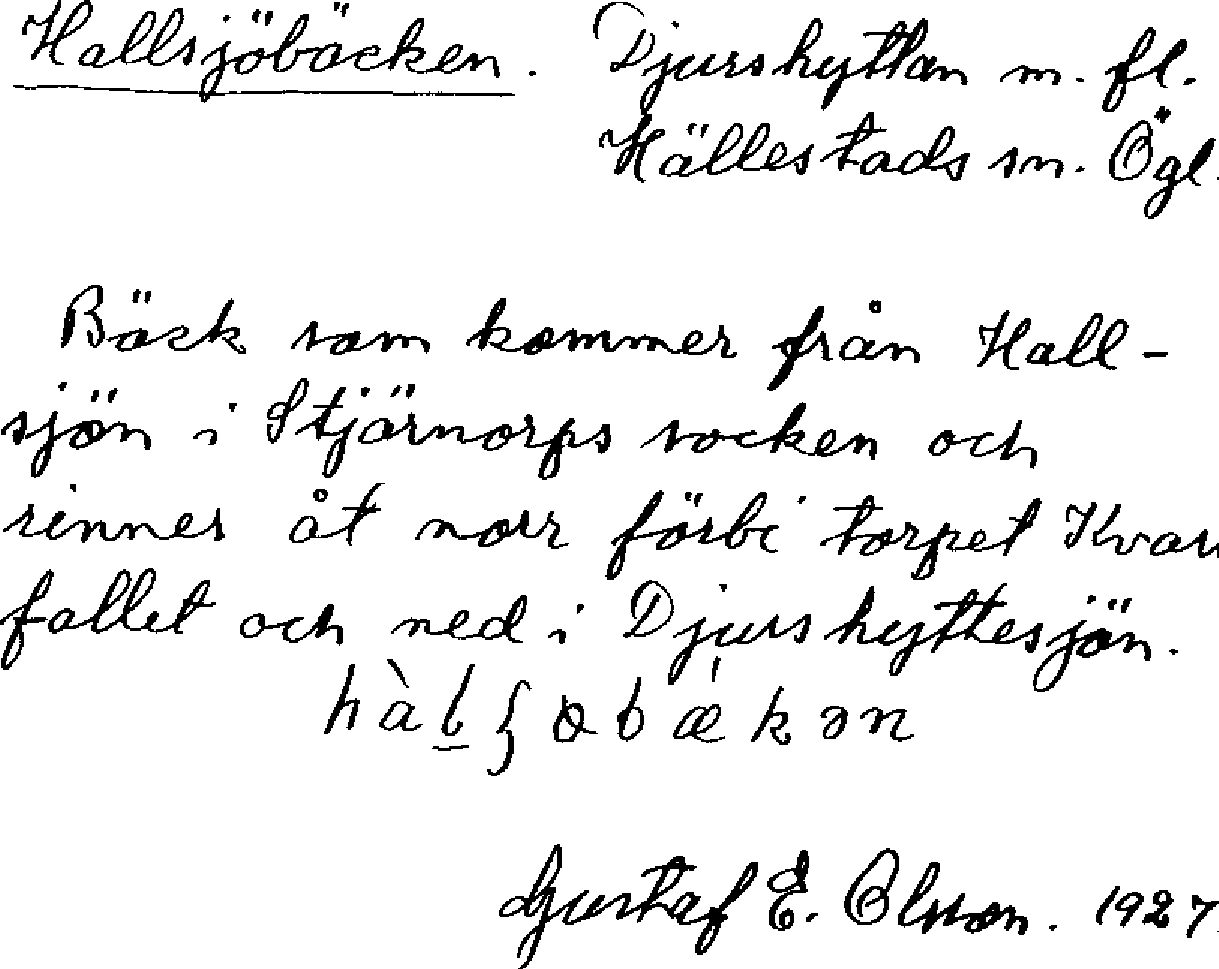 Hallsjöbäcken. Djurshyttan m. fl.
Hällestads sn. Ögl.
Bäck som kommer från Hall-
sjön i Stjärnorps socken och
rinner åt norr förbi torpet Kvarn
fallet och ned i Djurshyttesjön.
Gustaf E. Olsson. 1927.